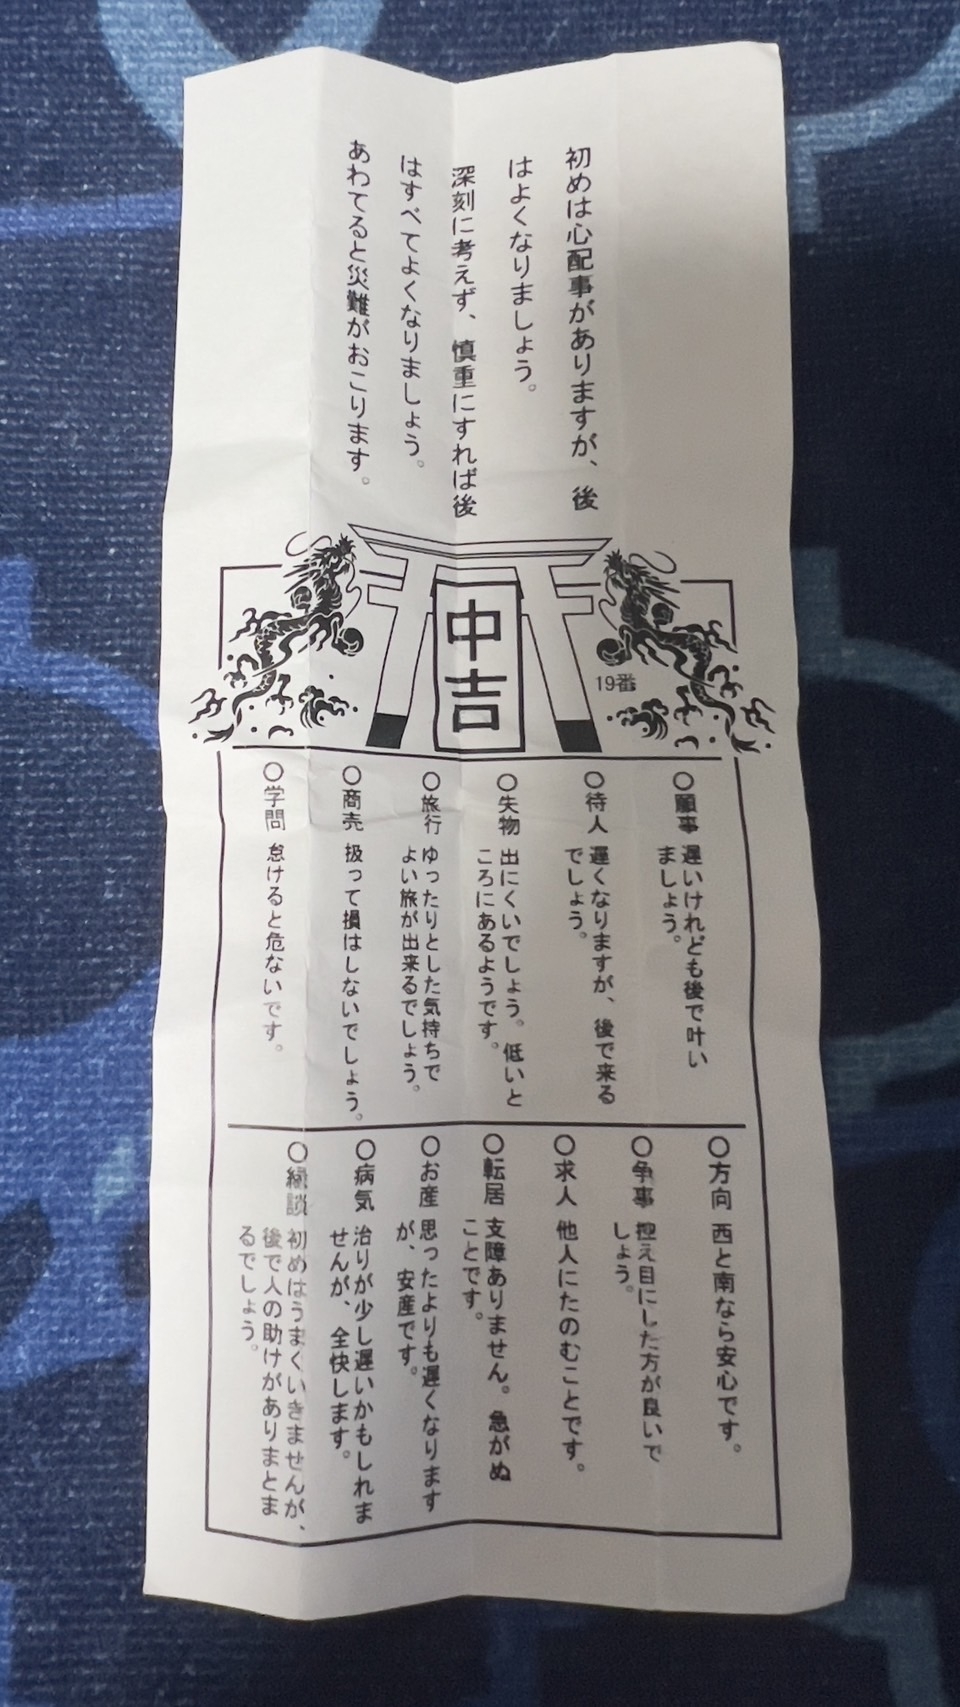 初めは心配事がありますが、後
はよくなりましょう。
深刻に考えず、慎重にすれば後
はすべてよくなりましょう。
あわてると災難がおこります。
19番
中吉
○願事 遅いけれども後で叶い
ましょう。
○待人 遅くなりますが、後で来る
でしょう。
○失物 出にくいでしょう。低いと
ころにあるようです。
○旅行 ゆったりとした気持ちで
よい旅が出来るでしょう。
○商売 扱って損はしないでしょう。
○学問 怠けると危ないです。
○方向 西と南なら安心です。
○争事 控え目にした方が良いで
しょう。
○求人 他人にたのむことです。
○転居 支障ありません。急がぬ
ことです。
○お産 思ったよりも遅くなります
が、安産です。
○病気 治りが少し遅いかもしれま
せんが、全快します。
○縁談 初めはうまくいきませんが、
後で人の助けがありまとま
るでしょう。